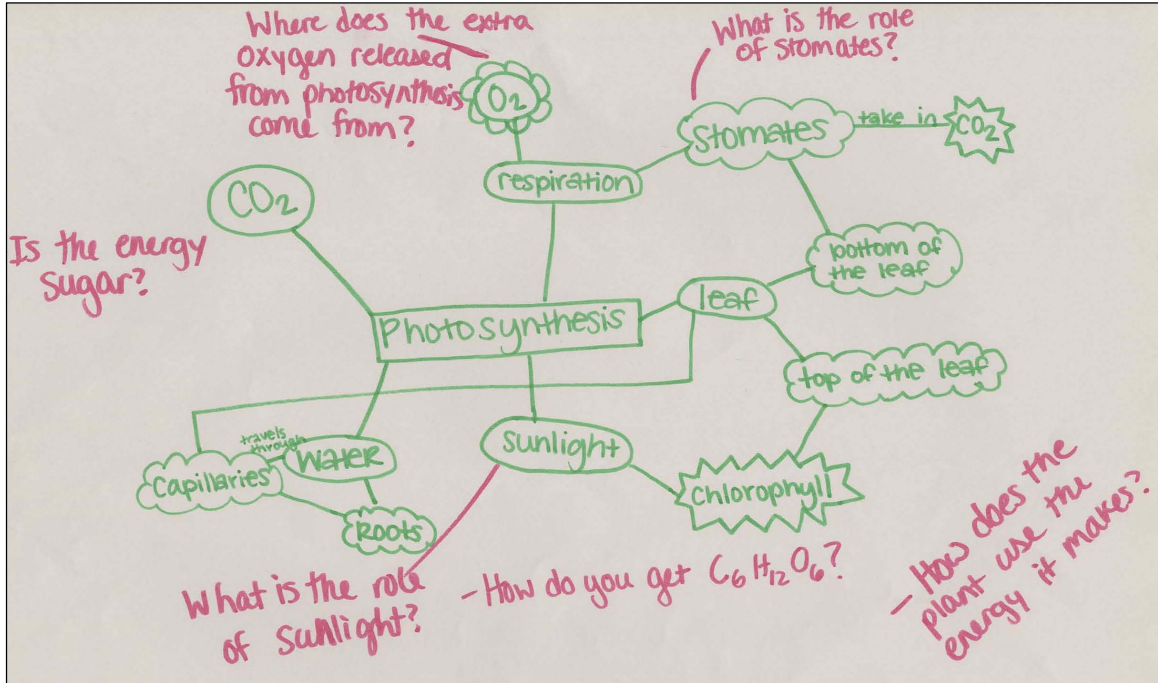 Where does the extra
oxygen released
from photosynthesis
come from?
What is the role
of stomates?
O2
stomates
take in
CO2
respiration
CO2
Is the energy
sugar?
bottom of
the leaf
leaf
Photosynthesis
top of the leaf
travels
through
water
sunlight
capillaries
chlorophyll
Roots
What is the role
of sunlight?
- How do you get C6H12O6?
- How does the
plant use the
energy it makes?